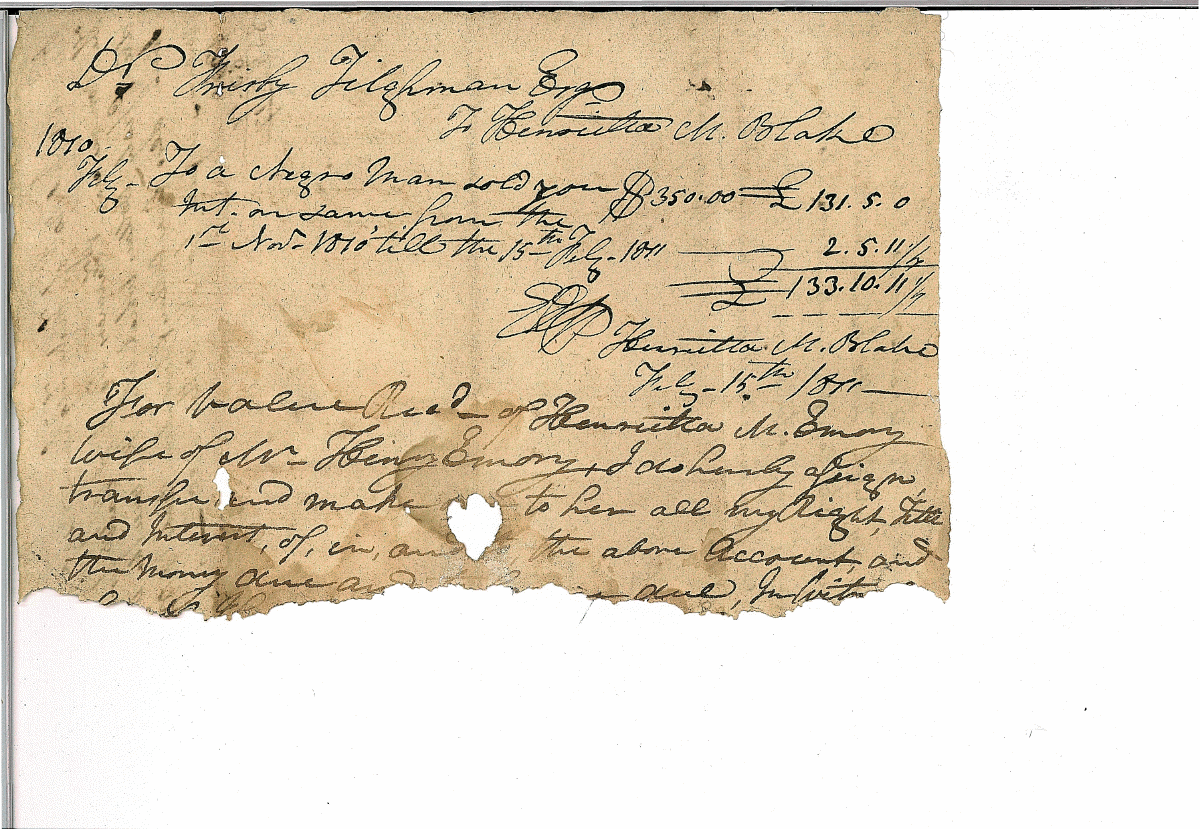 Dr Frisby Tilghman Esqr
To Henrietta M. Blake
1810
Feby - To a Negro Man sold you $350.00 = £ 131. 5. 0
Int. on same from the
1st Novr 1810 till the 15th Feby - 1811 2. 5. 11 1/2
£ 133. 10. 11 1/2
EE
Henrietta M. Blake
Feby - 15th 1811
For Value Recd - of Henrietta M. Emory
wife of Mr - Henry Emory, I do hereby assign
transfer and make to her all my Right, Title
and Interest, of, in, and the above Account, and
the Money due and due, In Witn